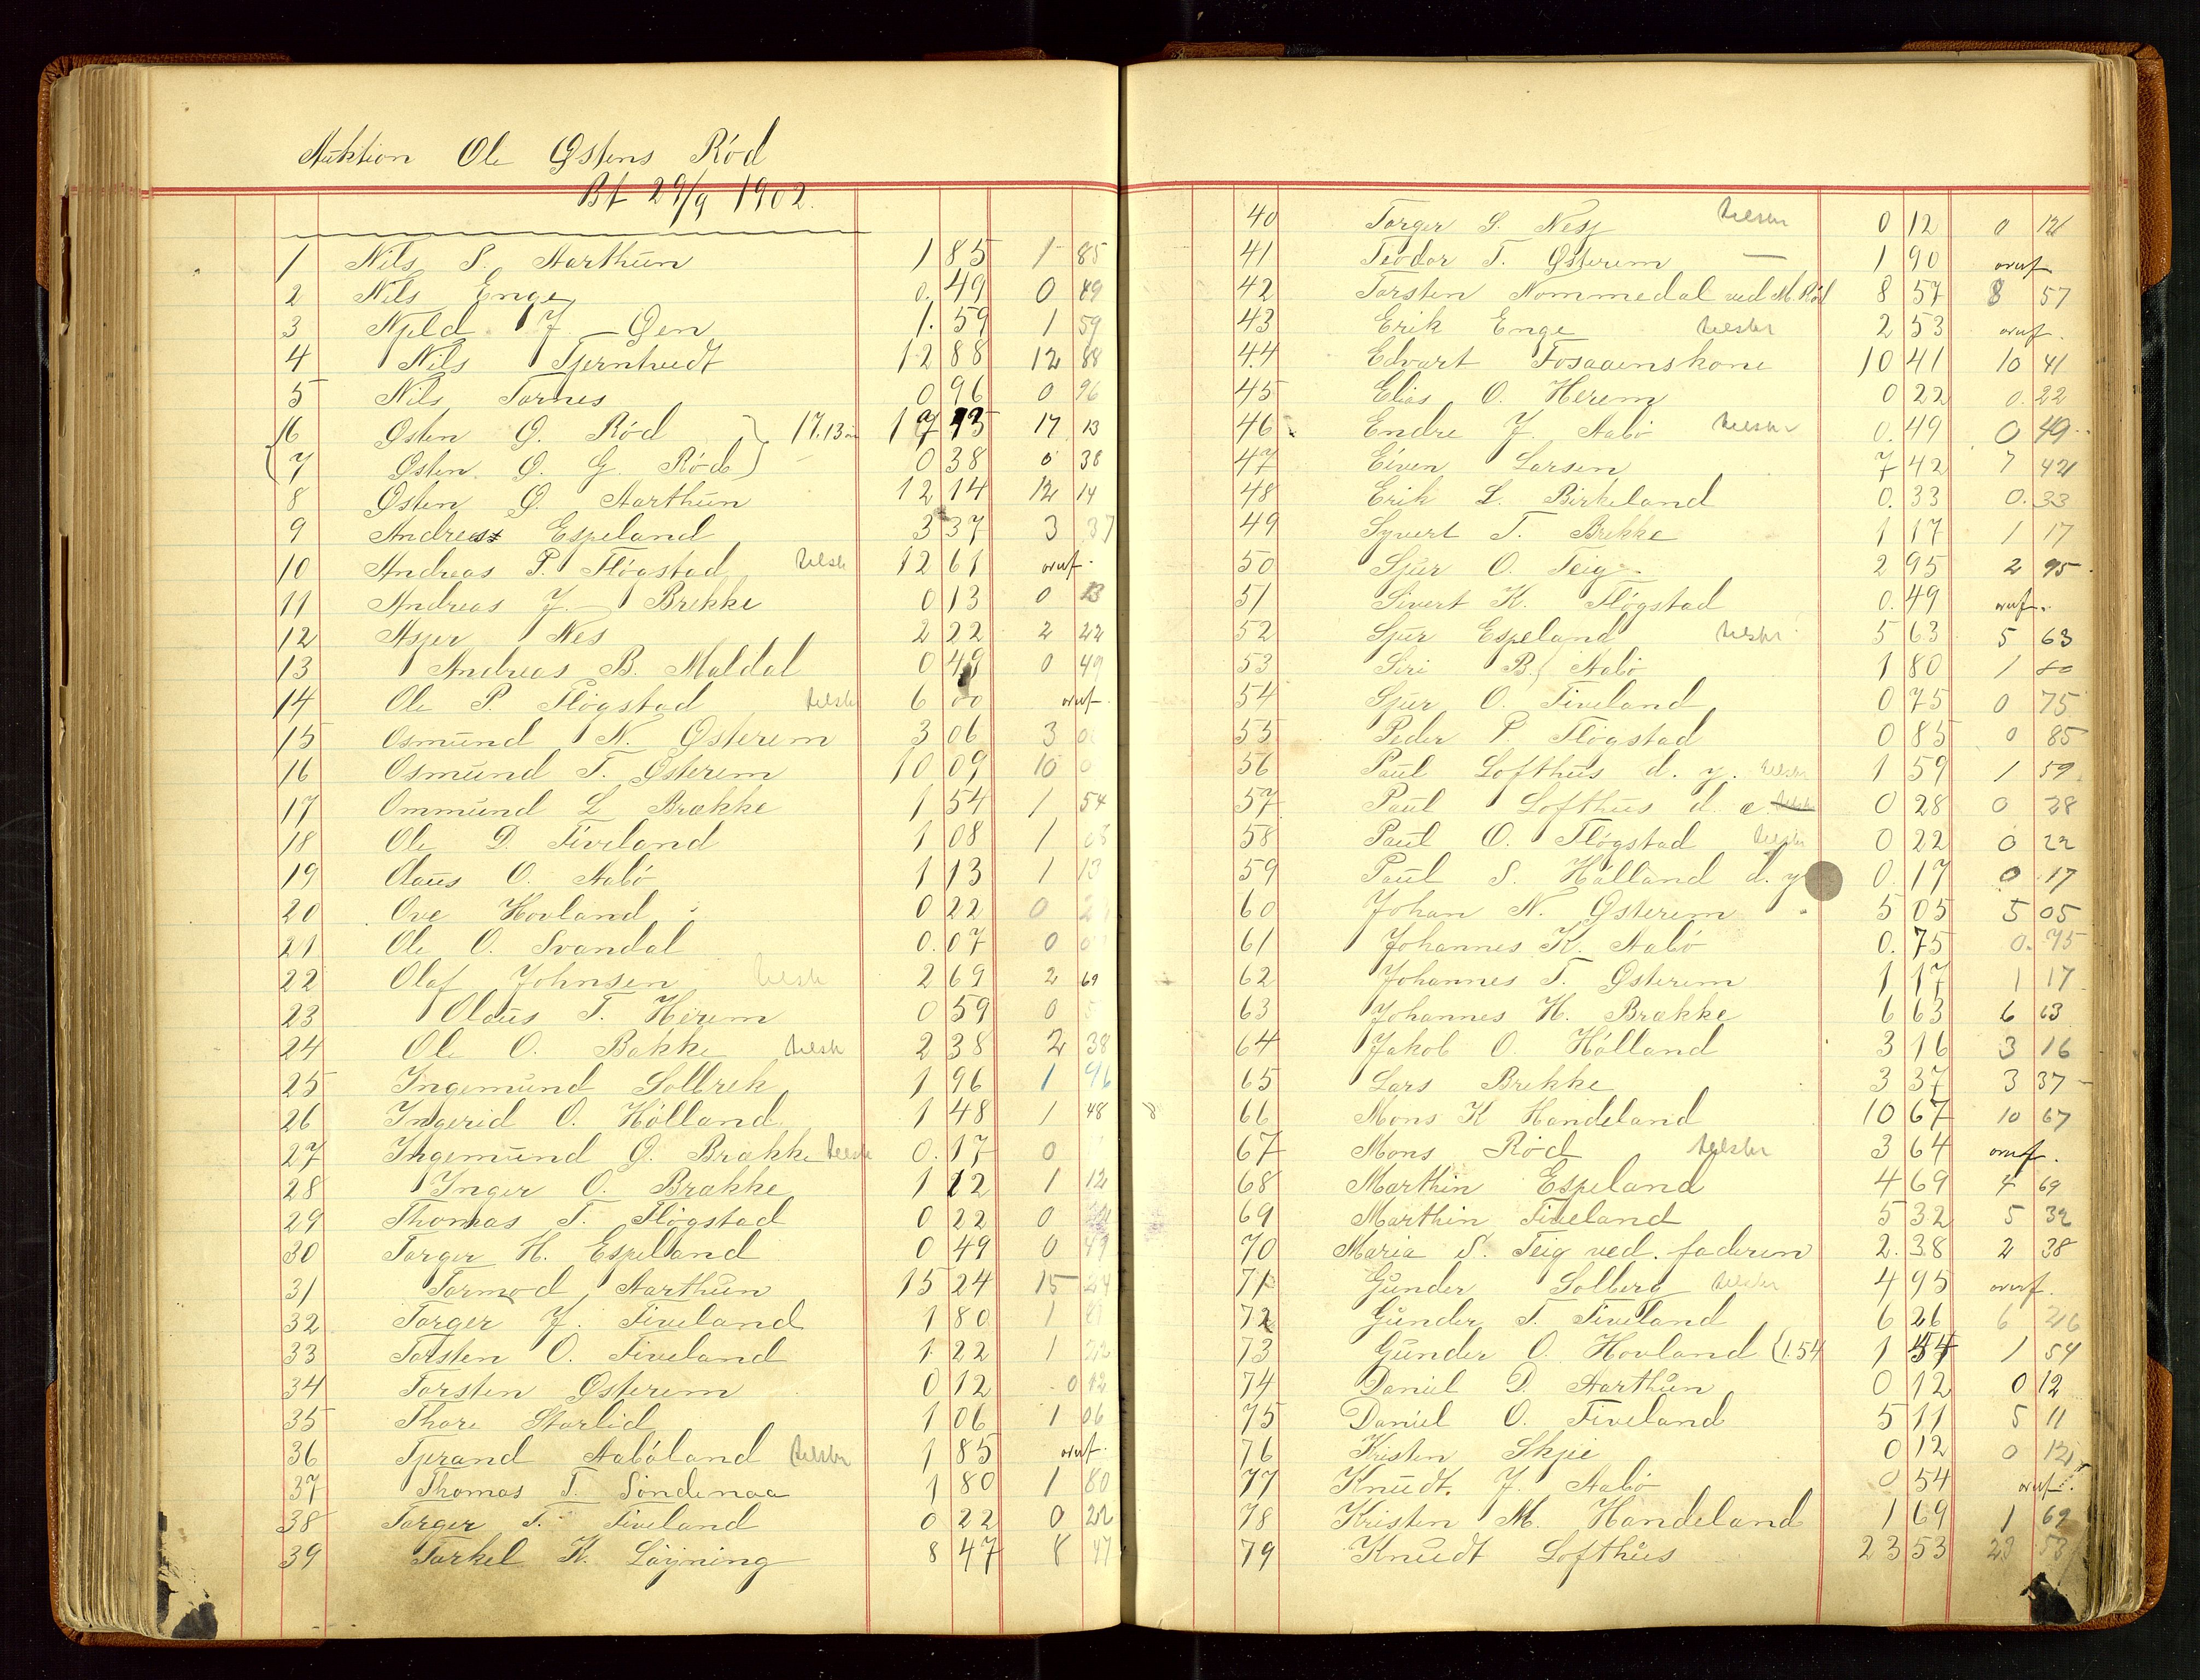 Auktion Ole Østens Rød
Bt 29/9 1902.
1 Nils S. Aarthun 1 85 1 85
2 Nils Enge 0. 49 0 49
3 Njeld J. Øen 1. 59 1 59
4 Nils Tjerntvedt 12 88 12 88
5 Nils Tornes 0 96 0 96
6 Østen Ø. Rød 17.13 17 13 17 13
7 Østen Ø. G. Rød 0 38 0 38
8 Østen Ø. Aarthun 12 14 12 14
9 Andreas Espeland 3 37 3 37
10 Andreas P. Fløgstad 12 61 overf.
11 Andreas J. Brekke 0 13 0 13
12 Asser Nes 2 22 2 22
13 Andreas B. Maldal 0 49 0 49
14 Ole P. Fløgstad 6 00 overf.
15 Osmund N. Østerem 3 06 3
16 Osmund T. Østerem 10 09 10 0
17 Ommund L Brække 1 54 1 54
18 Ole D. Fiveland 1 08 1 08
19 Olaus O. Aabø 1 13 1 13
20 Ove Hovland 0 22 0 2
21 Ole O. Svandal 0. 07 0 0
22 Olaf Johnsen 2 69 2 69
23 Olaus T. Herem 0 59 0 5
24 Ole O. Bakke 2 38 2 38
25 Ingemund Solbrek 1 96 1 96
26 Ingerid O. Hålland 1 48 1 48
27 Ingemund Ø. Brække 0. 17 0
28 Inger O. Brække 1 12 1 12
29 Thomas T. Fløgstad 0 22 0
30 Torger H. Espeland 0 49 0 49
31 Tormod Aarthun 15 24 15 24
32 Torger J. Fiveland 1 80 1
33 Torsten O. Fiveland 1 22 1 22
34 Torsten Østerem 0 12 0 12
35 Thore Storlid 1 06 1 06
36 Tjerand Aabøland 1 85 overf.
37 Thomas T. Söndenaa 1 80 1 80
38 Torger T. Fiveland 0 22 0 22
39 Torkel K. Løyning 8 47 8 47
40 Torger S. Nesj 0 12 0 12
41 Teodor T. Østerem — 1 90 overf.
42 Torsten Nommedal ved M. Rød 8 57 8 57
43 Erik Enge 2 53 overf.
44 Edvart Fosaaenskone 10 41 10 41
45 Elias O. Herem 0 22 0. 22
46 Endre J. Aabø 0. 49 0 49
47 Eiven Larsen 7 42 7 42
48 Erik L. Birkeland 0. 33 0. 33
49 Syvert T. Brekke 1 17 1 17
50 Sjur O. Teig 2 95 2 95
51 Sivert K. Fløgstad 0. 49 overf.
52 Sjur Espeland 5 63 5 63
53 Siri B. Aabø 1 80 1 80
54 Sjur O. Fiveland 0 75 0 75
55 Peder P. Fløgstad 0 85 0 85
56 Paul Lofthus d. y. 1 59 1 59
57 Paul Lofthus d. e. 0 28 0 28
58 Paul O. Fløgstad 0 22 0 22
59 Paul S. Hålland d. y 0. 17 0 17
60 Johan N. Østerem 5 05 5 05
61 Johannes K. Aabø 0. 75 0. 75
62 Johannes T. Østerem 1 17 1 17
63 Johannes H. Brække 6 63 6 63
64 Jakob O. Hålland 3 16 3 16
65 Lars Brekke 3 37 3 37
66 Mons K Handeland 10 67 10 67
67 Mons Rød 3 64 overf.
68 Marthin Espeland 4 69 4 69
69 Marthin Fiveland 5 32 5 32
70 Maria S. Teig ved. faderen 2. 38 2 38
71 Gunder Solberg 4 95 overf.
72 Gunder T. Fiveland 6 26 6 26
73 Gunder O. Hovland (1.54 1 54 1 54
74 Daniel D. Aarthun 0 12 0 12
75 Daniel O. Fiveland 5 11 5 11
76 Kristen Skjie 0 12 0 12
77 Knudt. J. Aabø 0 54 overf.
78 Kristen M. Handeland 1 69 1 69
79 Knudt Lofthus 23 53 23 53